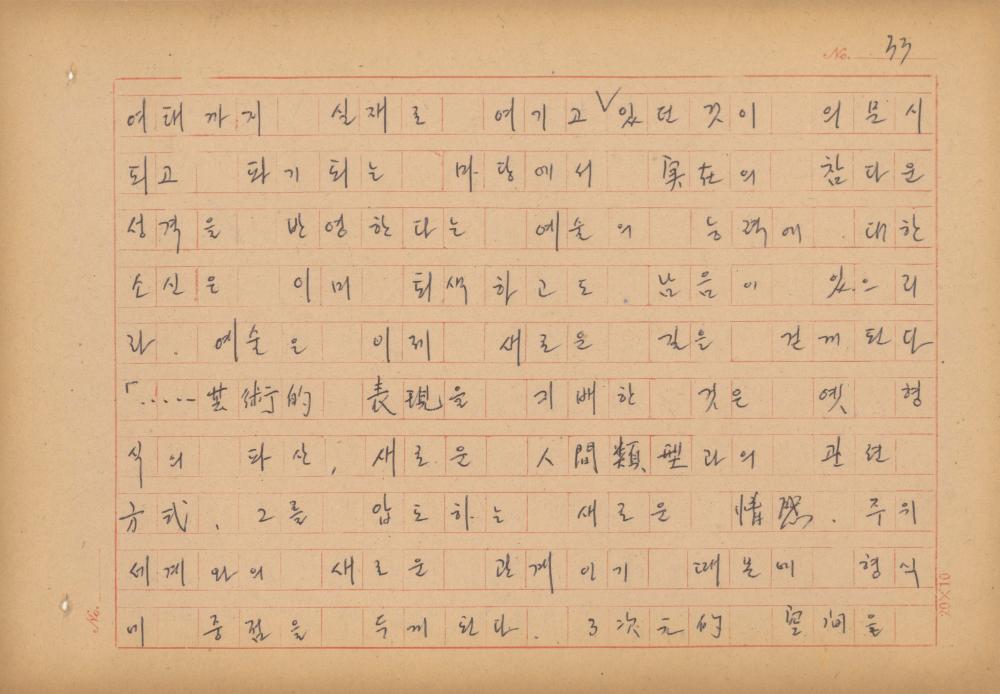 No. 33
여태까지 실재로 여기고 있던 것이 의문시
되고 파기되는 마당에서 実在의 참다운
성격을 반영한다는 예술의 능력에 대한
소신은 이미 퇴색하고도 남음이 있으리
라. 예술은 이제 새로운 길을 걷게 된다
「……芸術的 表現을 지배한 것은 옛 형
식의 파산, 새로운 人間類型과의 관련
方式, 그를 압도하는 새로운 情熱. 주위
세계와의 새로운 관계이기 때문에 형식
에 중점을 두게 된다. 3次元的 空间을
No.
20×10